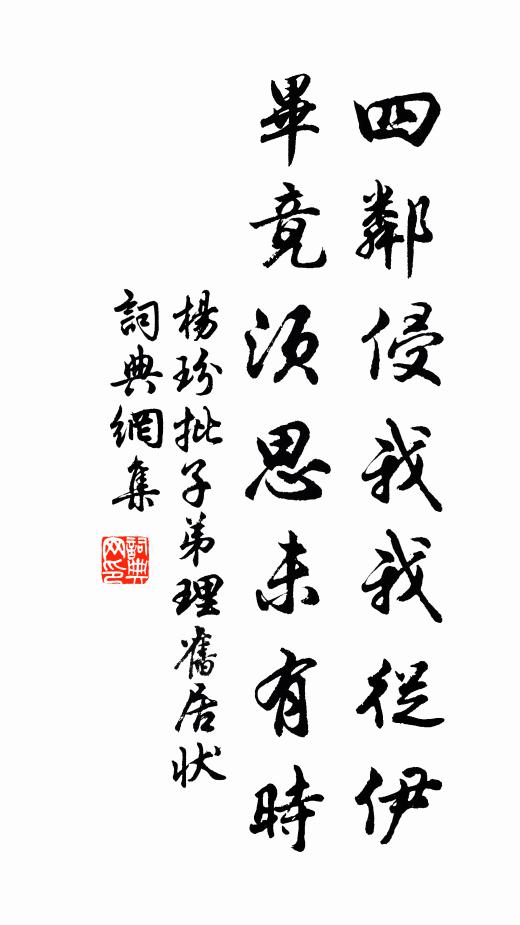 四鄰侵我我從伊
畢竟須思未有時
楊玢批子弟理舊居狀
詞典網集
詞典網印